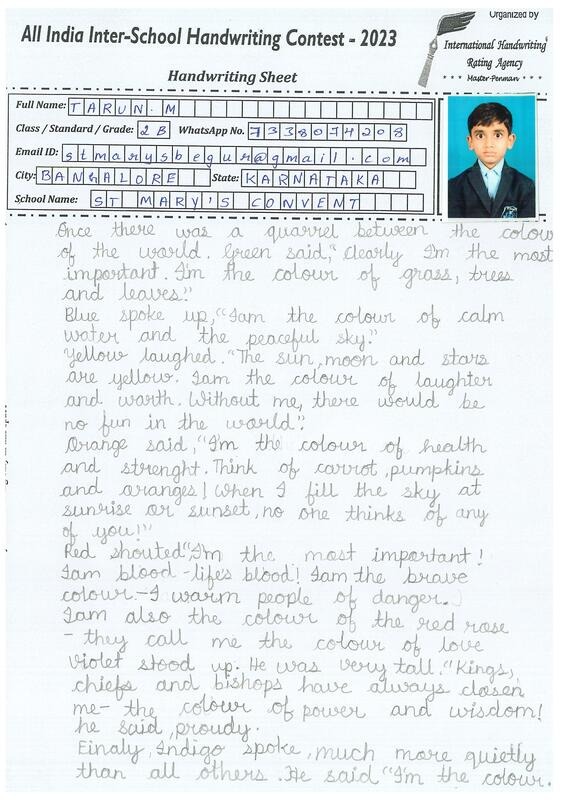 Organized by
All India Inter-School Handwriting Contest - 2023
International Handwriting
Rating Agency
* * * Master-Penman * * *
Handwriting Sheet
Full Name: TARUN. M
Class / Standard / Grade: 2 B WhatsApp No. 7338074208
Email ID: stmarysbegur@gmail.com
City: BANGALORE State: KARNATAKA
School Name: ST MARY'S CONVENT
Once there was a quarrel between the colour
of the world. Green said, "Clearly I'm the most
important. I'm the colour of grass, trees
and leaves."
Blue spoke up, "Iam the colour of calm
water and the peaceful sky."
Yellow laughed. "The sun, moon and stars
are yellow. Iam the colour of laughter
and warth. Without me, there would be
no fun in the world".
Orange said, "I'm the colour of health
and strenght. Think of carrot, pumpkins
and oranges! When I fill the sky at
sunrise or sunset, no one thinks of any
of you!"
Red shouted "I'm the most important!
Iam blood - life's blood! Iam the brave
colour - I warm people of danger.
Iam also the colour of the red rose
- they call me the colour of love
Violet stood up. He was very tall. "Kings,
chiefs and bishops have always closen
me- the colour of power and wisdom!
he said, proudy.
Einaly, Indigo spoke, much more quietly
than all others. He said "I'm the colour.